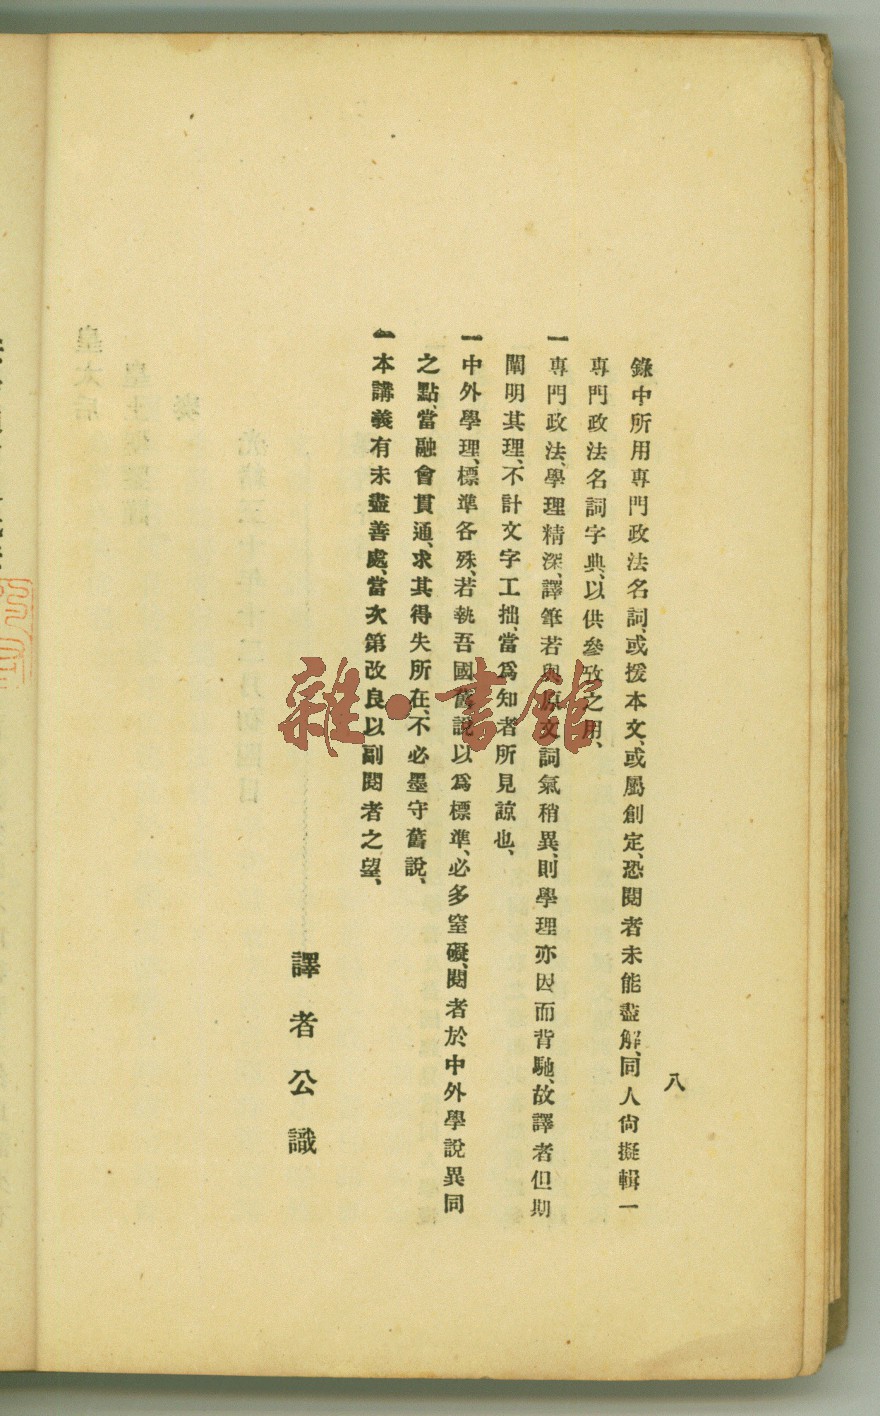 八
錄中所用專門政法名詞、或援本文、或屬創定、恐閱者未能盡解、同人尙擬輯一
專門政法名詞字典、以供參攷之用、
一專門政法、學理精深、譯筆若與原文詞氣稍異、則學理亦因而背馳、故譯者但期
闡明其理、不計文字工拙、當爲知者所見諒也、
一中外學理、標準各殊、若執吾國舊說以爲標準、必多窒礙、閱者於中外學說異同
之點、當融會貫通、求其得失所在、不必墨守舊說、
一本講義有未盡善處、當次第改良以副閱者之望、
譯者公識
雜·書館